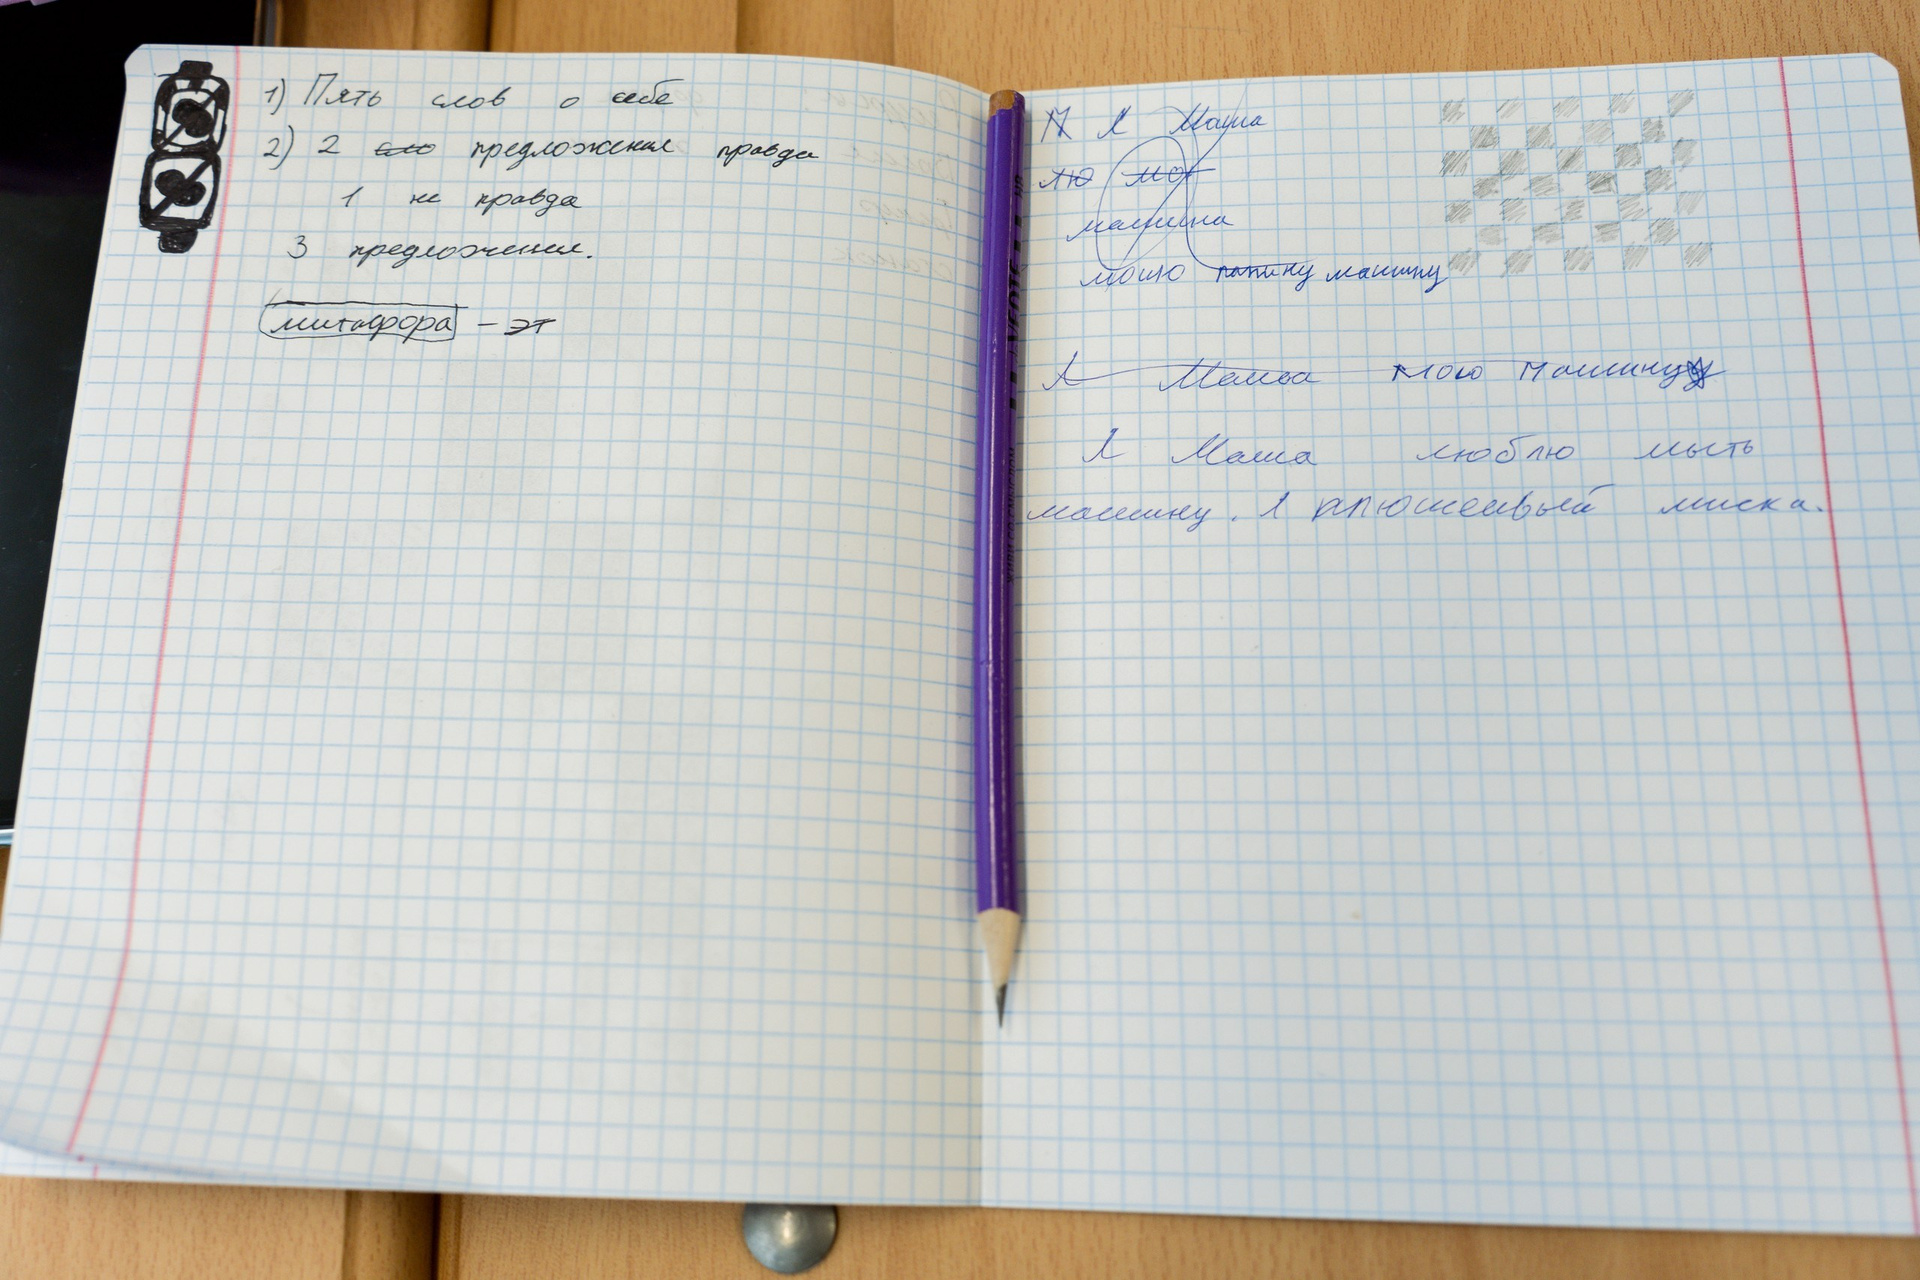 1) Пять слов о себе
2) 2 сло предложения правда
1 не правда
3 предложения.
митафора - эт
Я Маша
лю мо
машина
мою папину машину
Я Маша мою машину
Я Маша люблю мыть
машину. Я плюшевый миска.